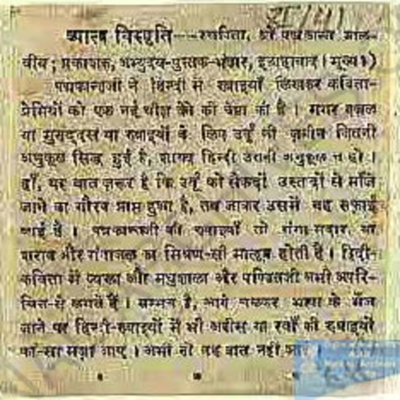 प्याला विस्मृति—रचयिता, श्री पद्मकान्त माल-
वीय; प्रकाशक, अभ्युदय-पुस्तक-भंडार, इलाहाबाद। मूल्य १)
पद्मकान्तजी ने हिन्दी में रुबाइयाँ लिखकर कविता-
प्रेमियों को एक नई चीज़ देने की चेष्टा की है। मगर ग़ज़ल
या मुसद्दस या रुबाइयों के लिए उर्दू की ज़मीन जितनी
अनुकूल सिद्ध हुई है, शायद हिन्दी उतनी अनुकूल न हो।
हाँ, यह बात ज़रूर है कि उर्दू को सैकड़ों उस्तादों से माँजे
जाने का गौरव प्राप्त हुआ है, तब जाकर उसमें यह सफ़ाई
आई है। पद्मकान्तजी की रुबाइयाँ तो गंगा-मदार, या
शराब और गंगाजल का मिश्रण-सी मालूम होती हैं। हिंदी-
कविता में प्याला और मधुशाला और पण्डितजी अभी अपरि-
चित-से लगते हैं। सम्भव है, आगे चलकर भाषा के मँज
जाने पर हिन्दी-रुबाइयों में भी अनीस या रवाँ की रुबाइयों
का-सा मज़ा आए। अभी तो वह बात नहीं आई।